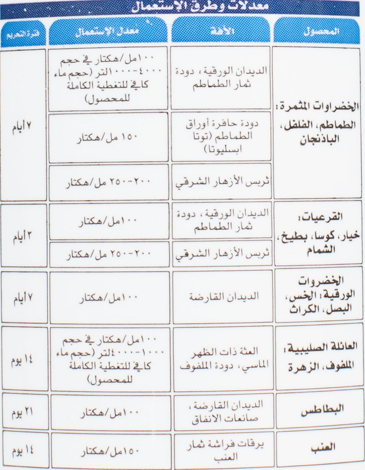 معدلات وطرق الإستعمال
المحصول
الآفة
معدل الإستعمال
فترة التحريم
الخضراوات المثمرة:
الطماطم، الفلفل،
الباذنجان
الديدان الورقية، دودة
ثمار الطماطم
١٠٠مل/هكتار في حجم
٤٠٠-١٠٠٠لتر (حجم ماء
كافي للتغطية الكاملة
للمحصول)
٧ أيام
دودة حافرة أوراق
الطماطم (توتا
ابسليوتا)
١٥٠ مل/هكتار
ثربس الأزهار الشرقي
٢٠٠-٢٥٠ مل/هكتار
القرعيات:
خيار، كوسا، بطيخ،
الشمام
الديدان الورقية، دودة
ثمار الطماطم
١٠٠مل/هكتار
٣ أيام
ثربس الأزهار الشرقي
٢٠٠-٢٥٠ مل/هكتار
الخضروات
الورقية: الخس،
البصل، الكراث
الديدان القارضة
١٠٠مل/هكتار
٧ أيام
العائلة الصليبية:
الملفوف، الزهرة
العثة ذات الظهر
الماسي، دودة الملفوف
١٠٠مل/هكتار في حجم
(حجم ماء
كافي للتغطية الكاملة
للمحصول)
١٤ يوم
البطاطس
الديدان القارضة،
صانعات الانفاق
١٠٠مل/هكتار
٢١ يوم
العنب
يرقات فراشة ثمار
العنب
١٥٠مل/هكتار
١٤ يوم